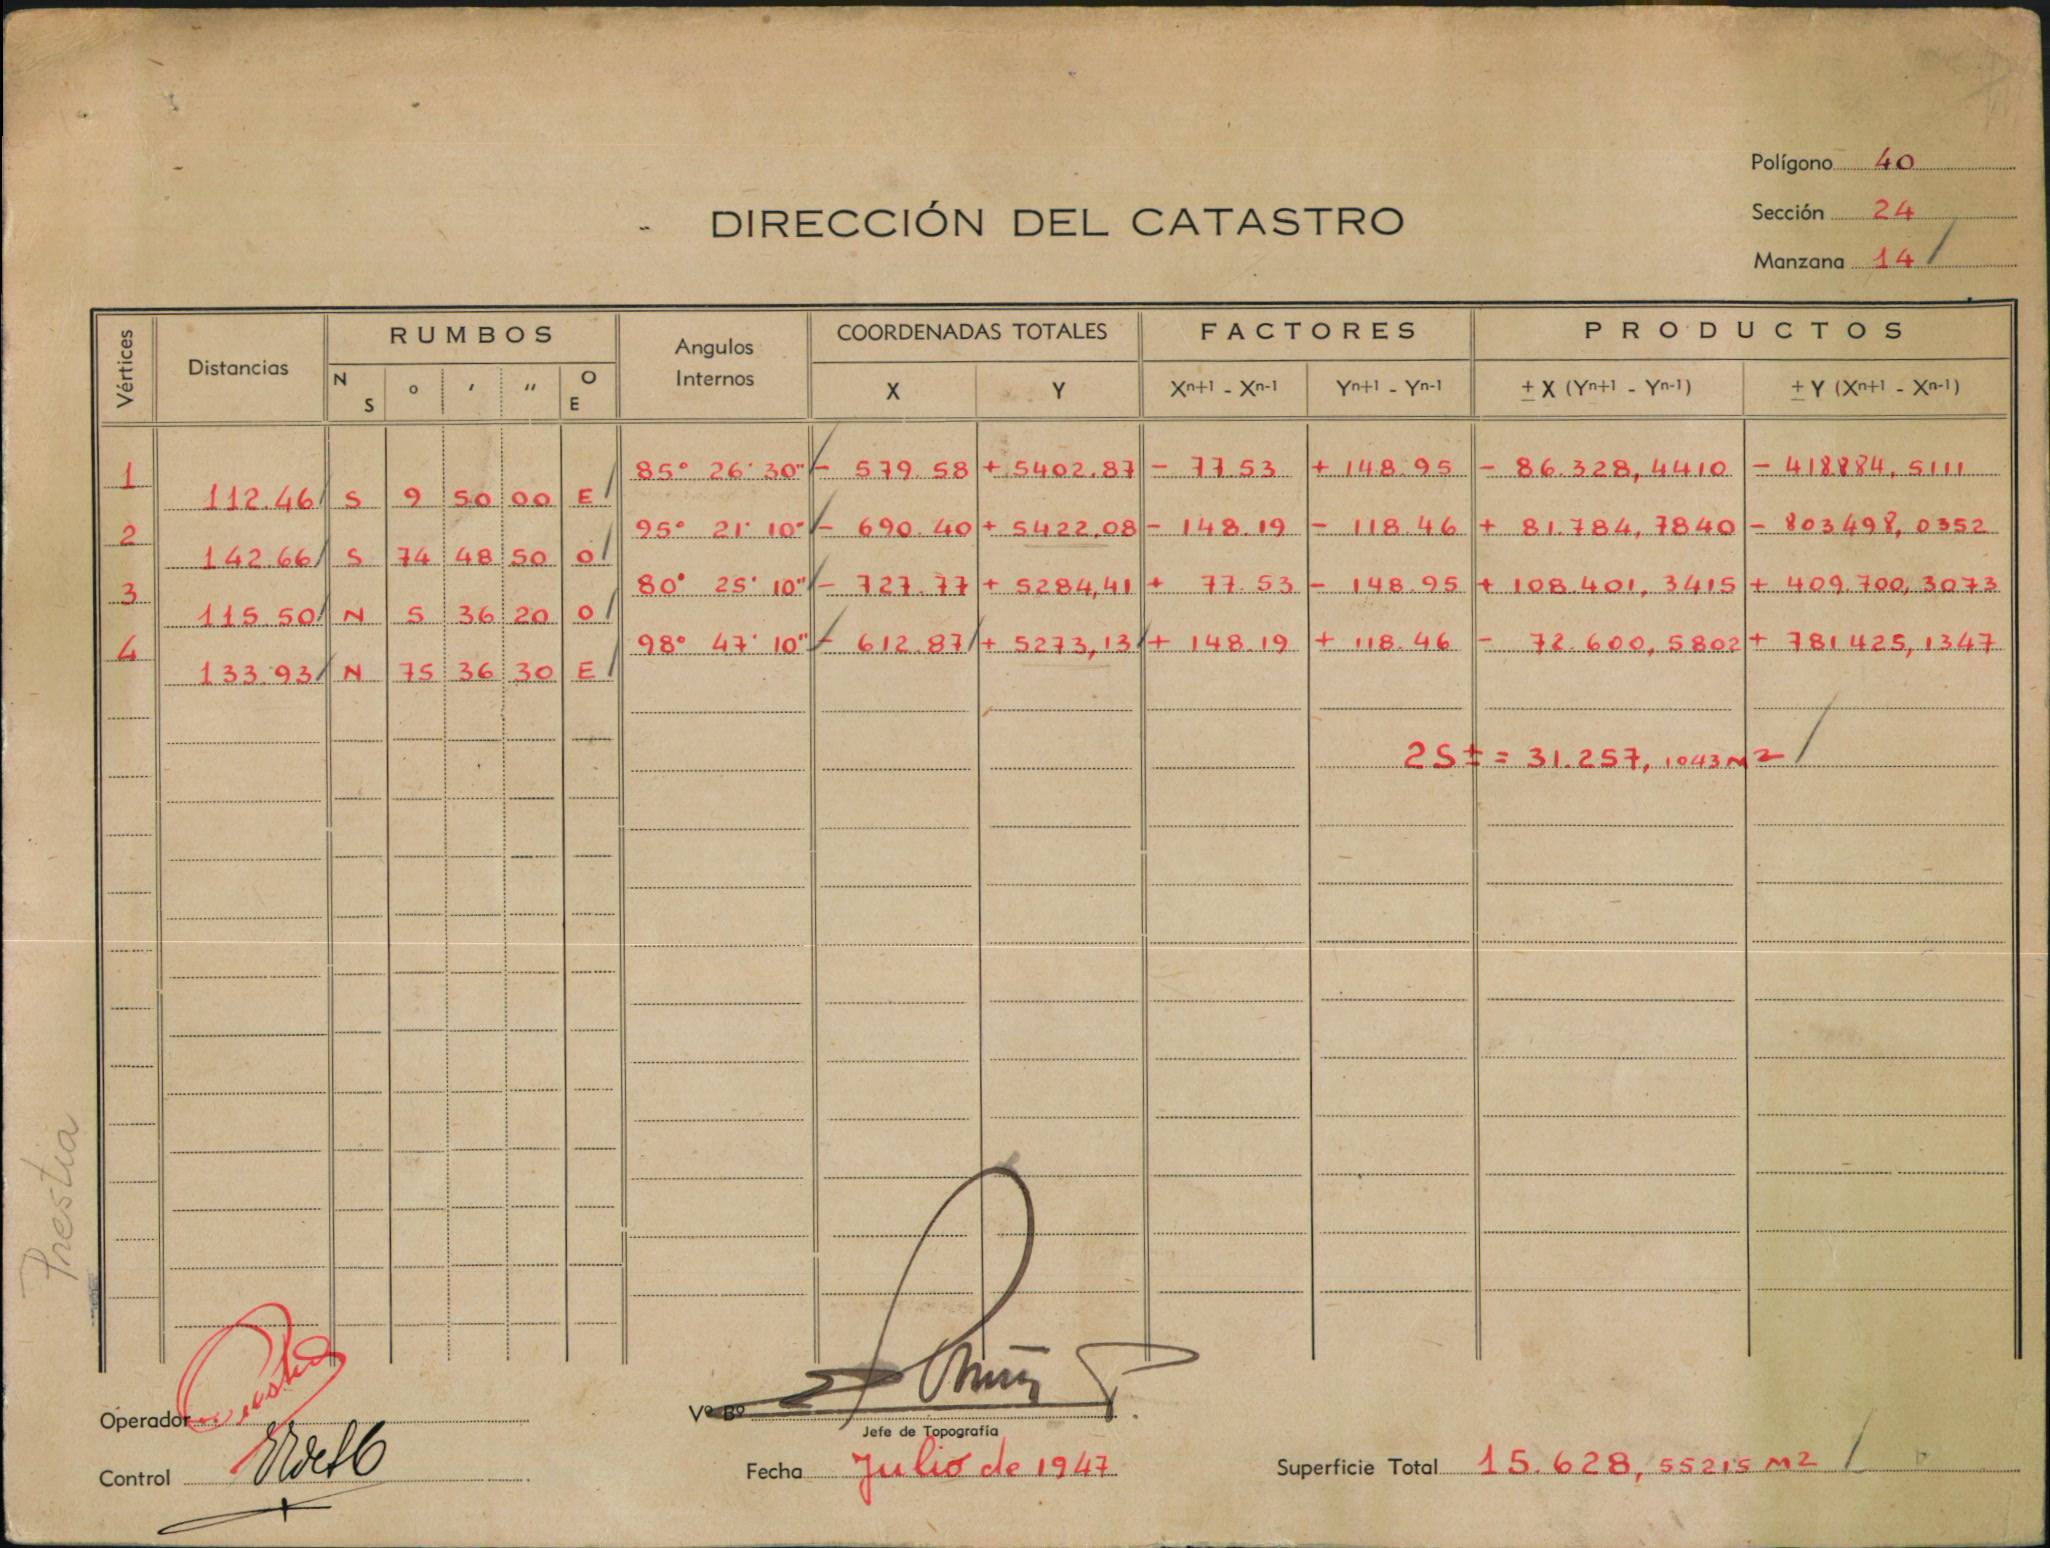 Polígono 40
DIRECCIÓN DEL CATASTRO
Sección 24
Manzana 14
Vértices Distancias RUMBOS Angulos Internos COORDENADAS TOTALES FACTORES PRODUCTOS
N S ° ′ ″ O E X Y Xn+1 - Xn-1 Yn+1 - Yn-1 ± X (Yn+1 - Yn-1) ± Y (Xn+1 - Xn-1)
1 85° 26' 30" - 579.58 + 5402.87 - 77.53 + 148.95 - 86.328,4410 - 418884,5111
112.46 S 9 50 00 E
2 95° 21' 10" - 690.40 + 5422,08 - 148.19 - 118.46 + 81.784,7840 - 803498,0352
142.66 S 74 48 50 O
3 80° 25' 10" - 727.77 + 5284,41 + 77.53 - 148.95 + 108.401,3415 + 409.700,3073
115.50 N 5 36 20 O
4 98° 47' 10" - 612.87 + 5273,13 + 148.19 + 118.46 - 72.600,5802 + 781425,1347
133.93 N 75 36 30 E
2S ± = 31.257,1043 M2
Prestia
Operador
Vº Bº
Jefe de Topografía
Control
Fecha Julio de 1947
Superficie Total 15.628,55215 M2